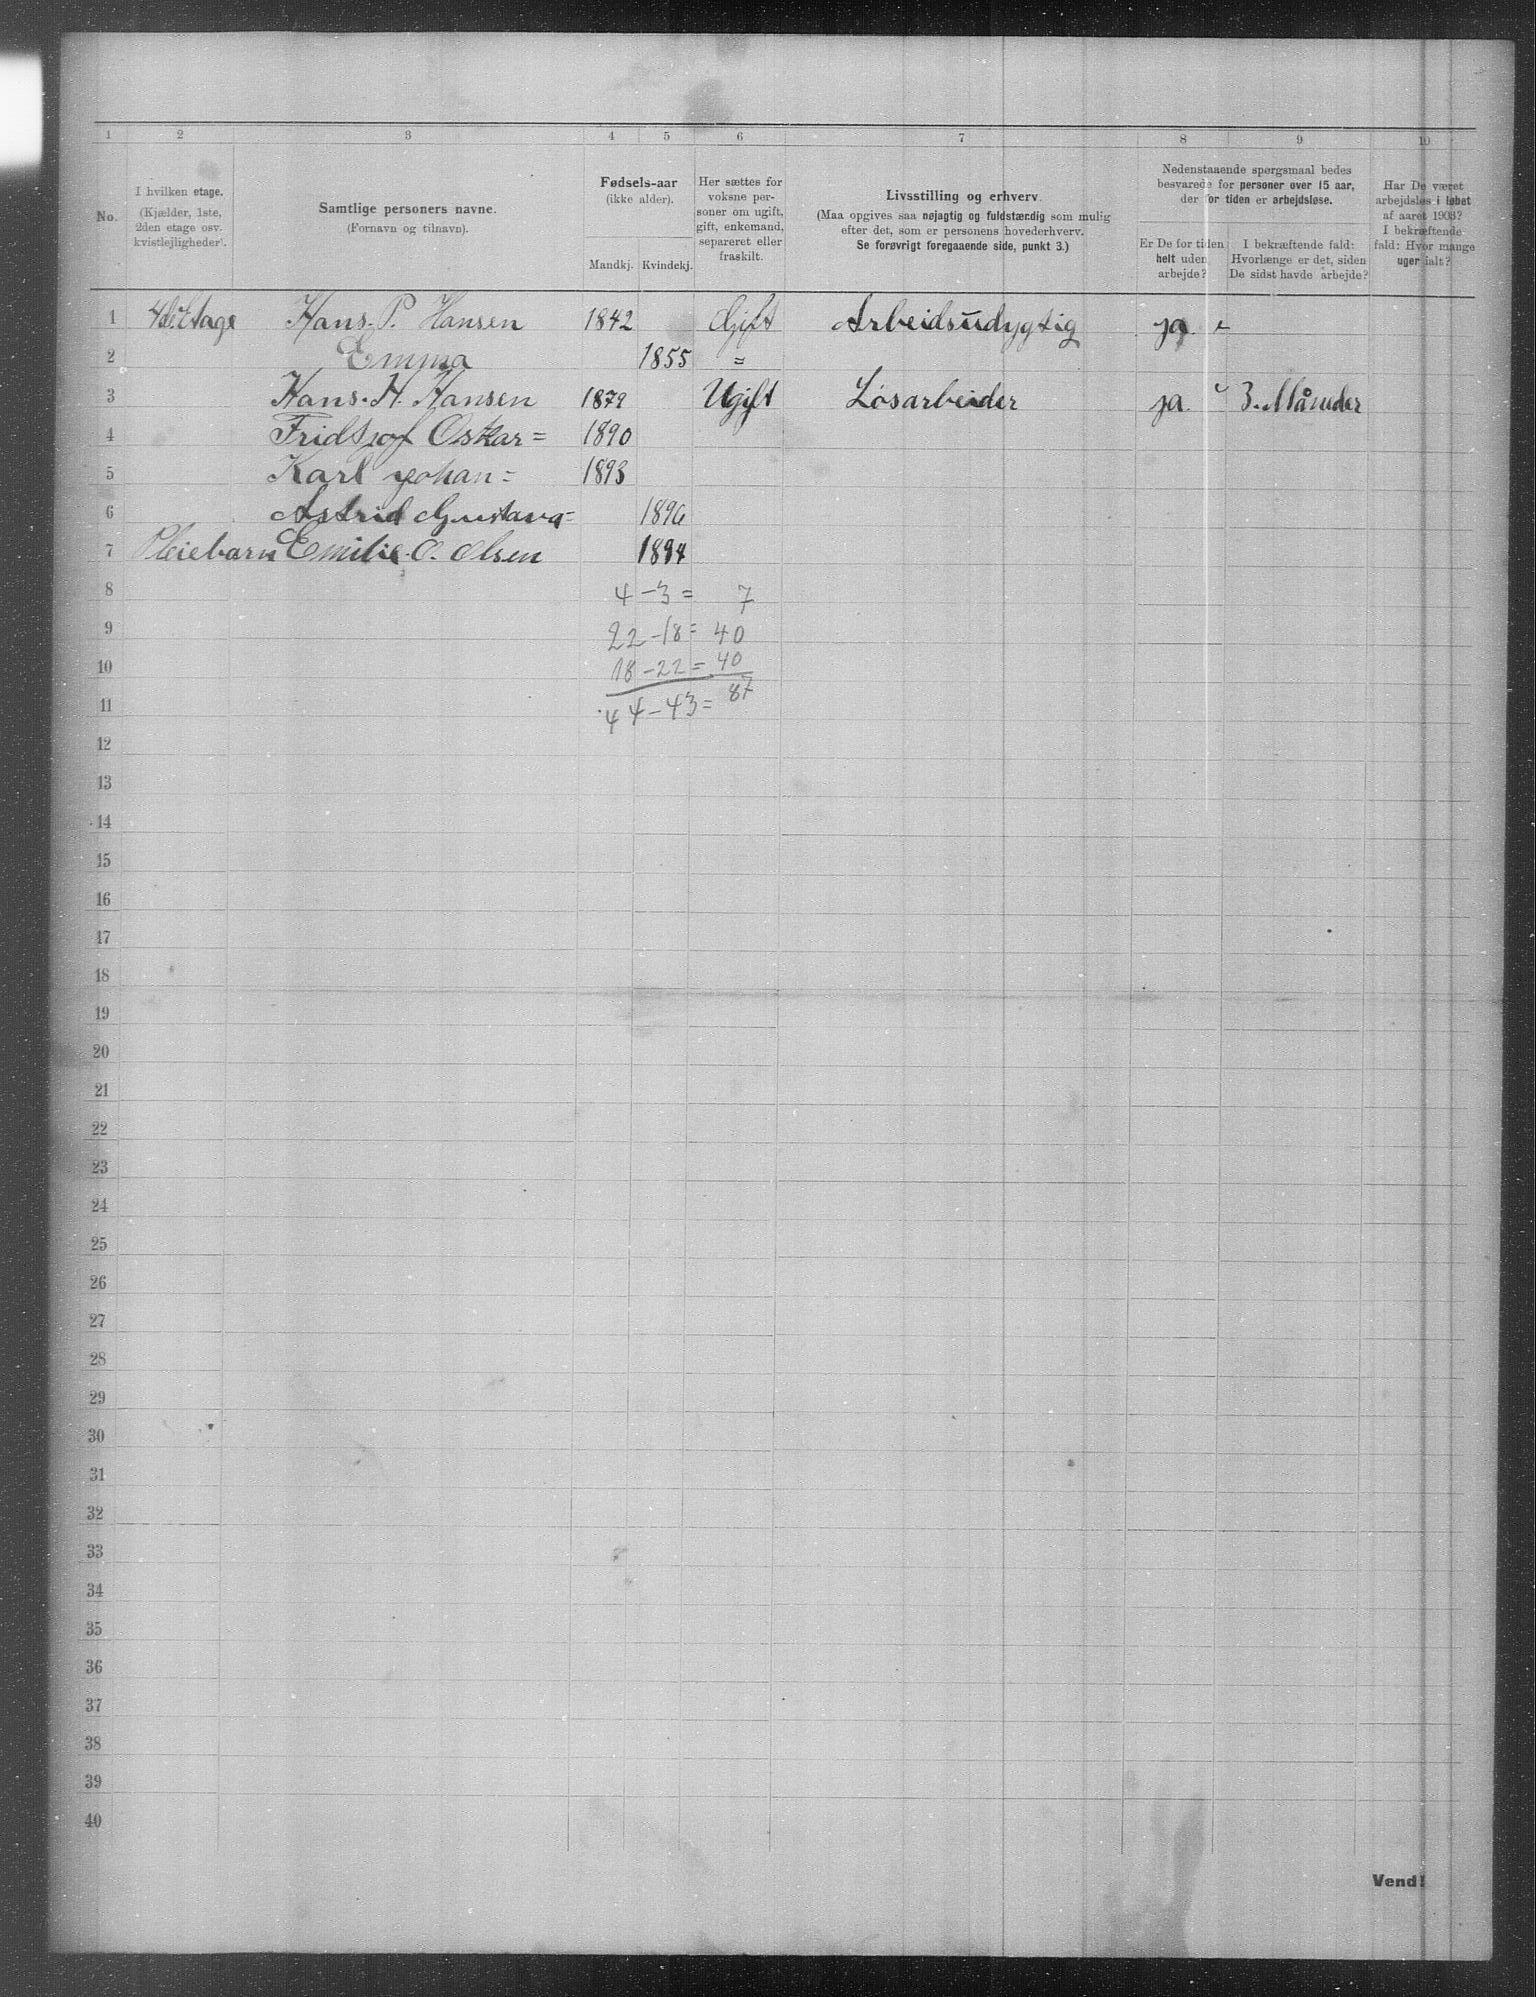 1 2 3 4 5 6 7 8 9 10
No.
I hvilken etage.
(Kjælder, 1ste,
2den etage osv.
kvistlejligheder).
Samtlige personers navne.
(Fornavn og tilnavn).
Fødsels-aar
(ikke alder).
Mandkj. Kvindekj.
Her sættes for
voksne per-
soner om ugift,
gift, enkemand,
separeret eller
fraskilt.
Livsstilling og erhverv.
(Maa opgives saa nøjagtig og fuldstændig som mulig
efter det, som er personens hovederhverv.
Se forøvrigt foregaaende side, punkt 3.)
Nedenstaaende spørgsmaal bedes
besvarede for personer over 15 aar,
der for tiden er arbejdsløse.
Er De for tiden
helt uden
arbejde?
I bekræftende fald:
Hvorlænge er det, siden
De sidst havde arbejde?
Har De været
arbejdsløs i løbet
af aaret 1903?
I bekræftende
fald: Hvor mange
uger ialt?
1 4de Etage Hans. P. Hansen 1842 Gift Arbeidsudygtig ja. -
2 Emma 1855 =
3 Hans. H. Hansen 1879 Ugift Løsarbeider ja. 3. Måneder
4 Fridtjof Oskar = 1890
5 Karl Johan = 1893
6 Astrid Gustava = 1896
7 Pleiebarn Emilie. O. Olsen 1894
8 4 - 3 = 7
9 22 - 18 = 40
10 18 - 22 = 40
11 44 - 43 = 87
12
13
14
15
16
17
18
19
20
21
22
23
24
25
26
27
28
29
30
31
32
33
34
35
36
37
38
39
40
Vend!